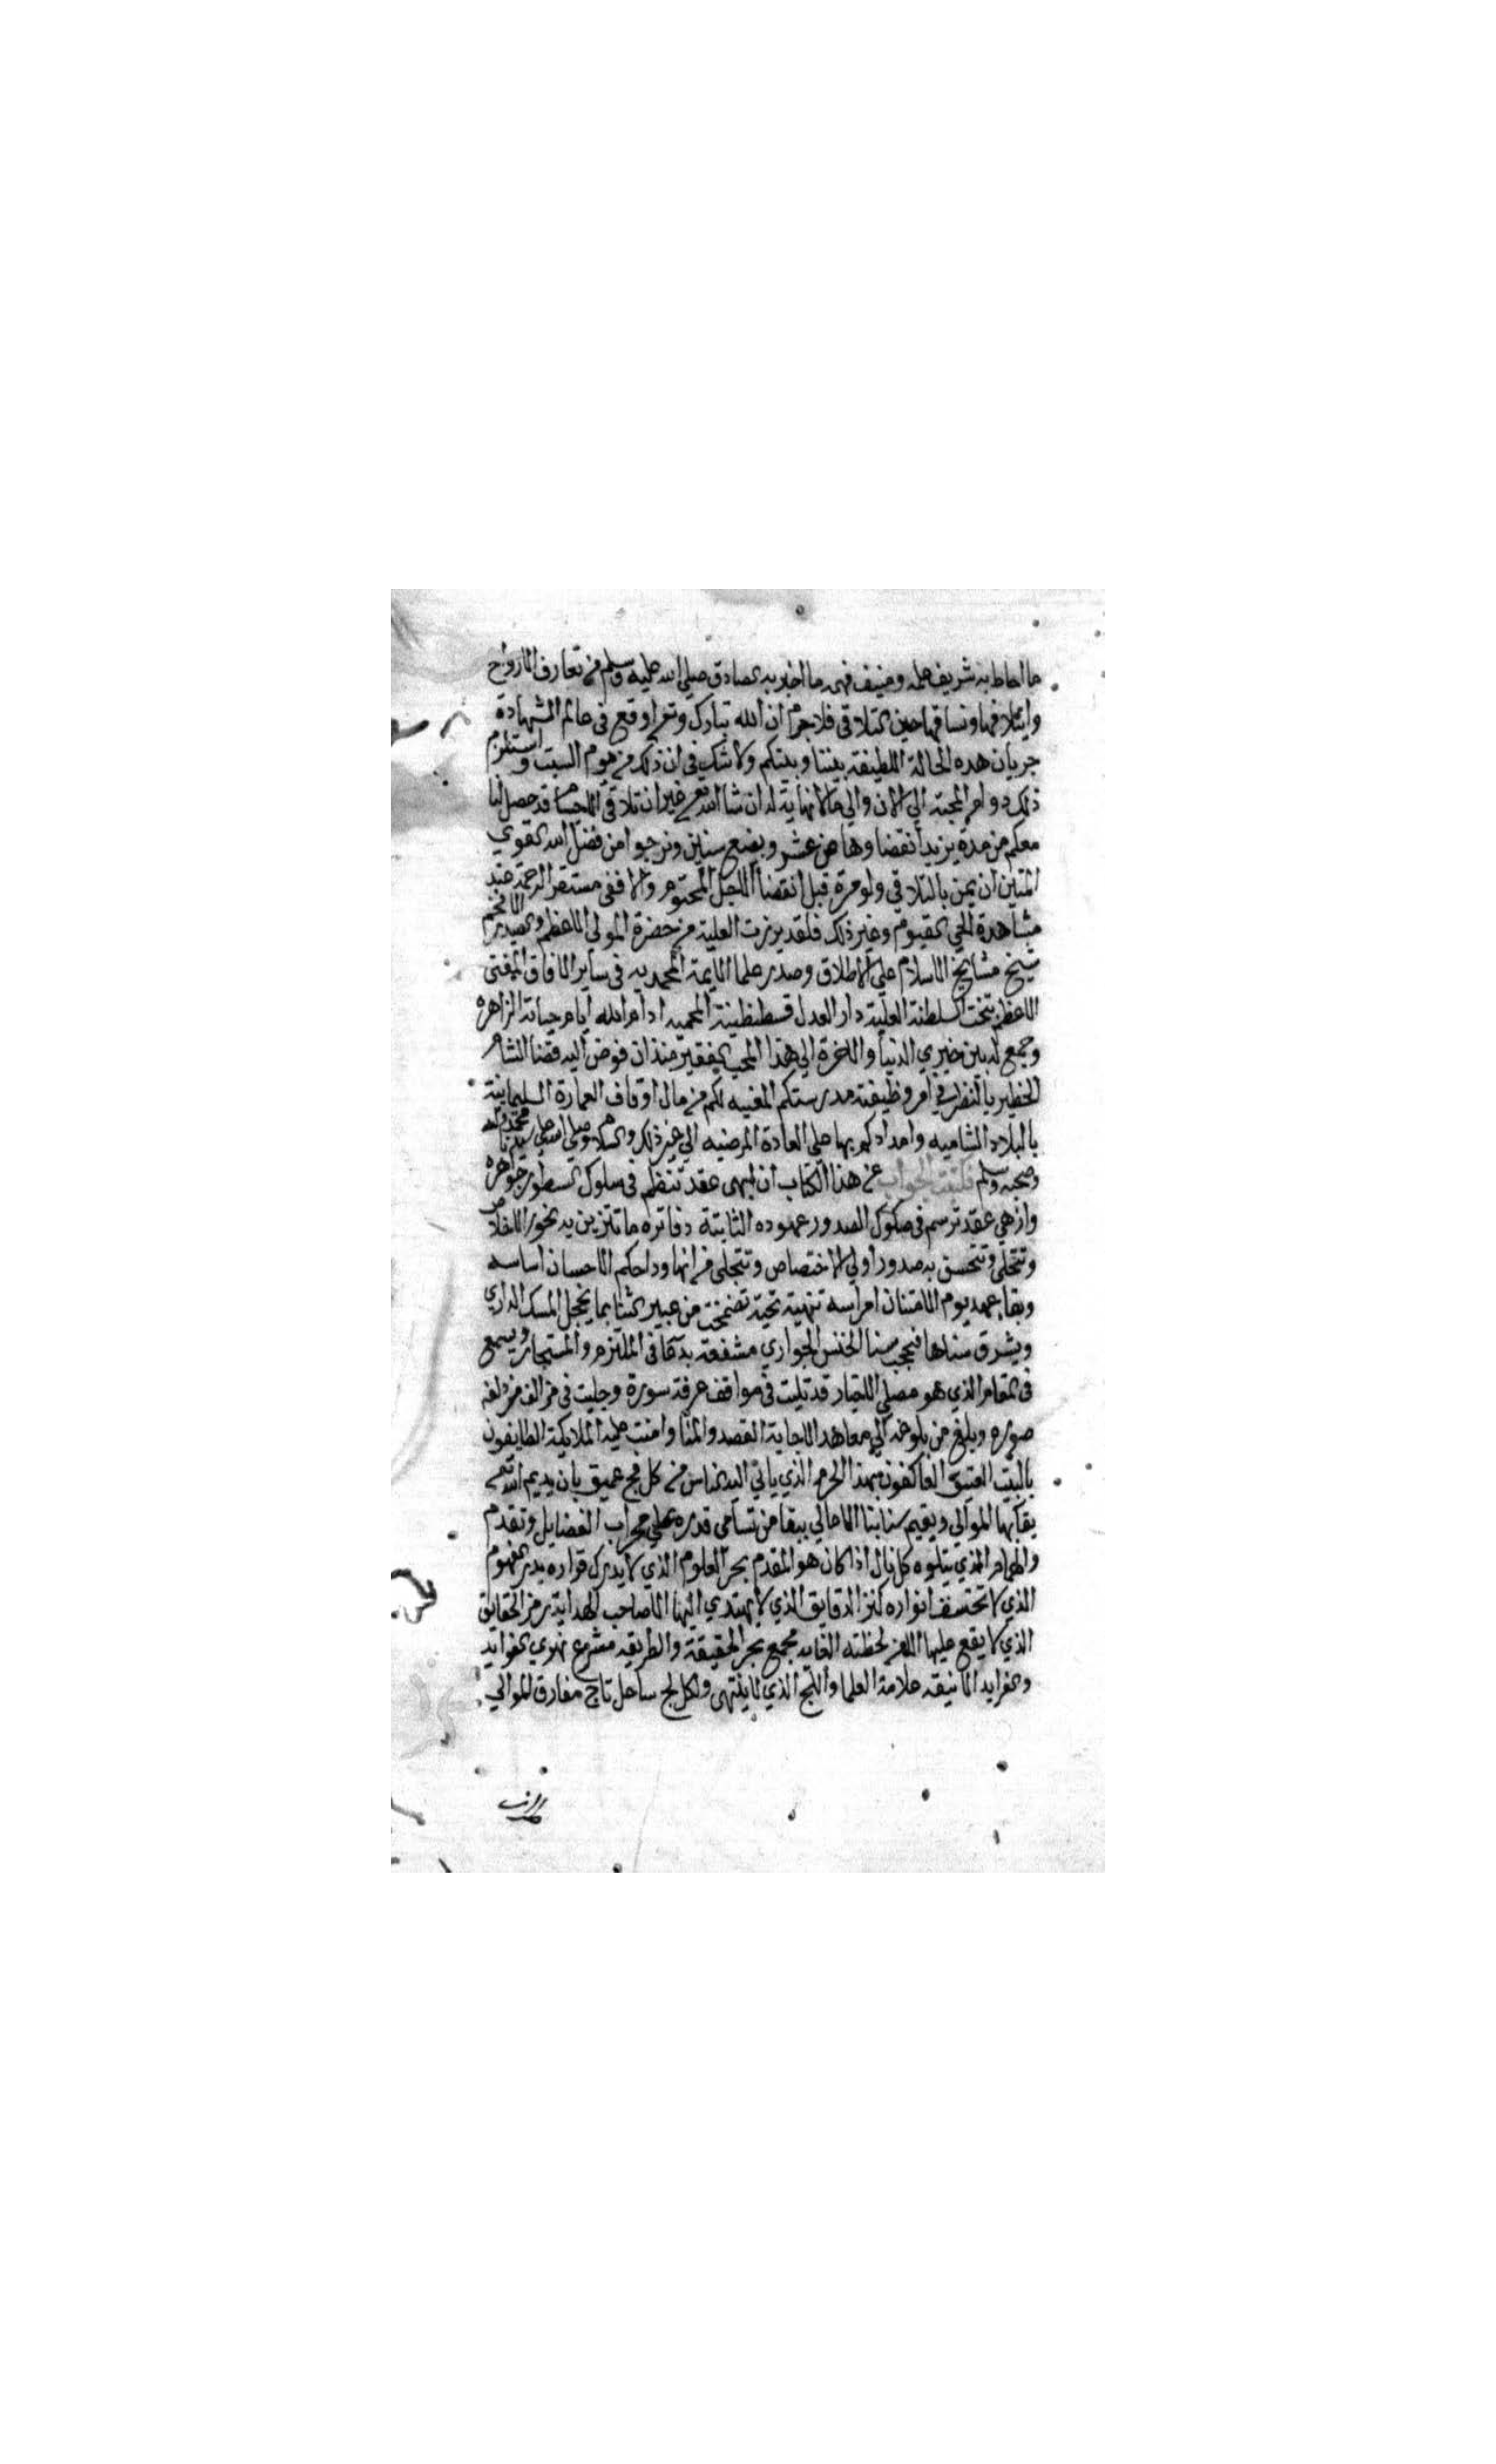 ما احاط به شريف علمه ومنيف فهمه ما اخبر به الصادق صلى الله عليه وسلم من تعارف الارواح
وايتلافها وتساقها حين التلاقي فلا جرم ان الله تبارك وتعالى اوقع في عالم الشهادة
جريان هذه الحالة اللطيفة بيننا وبينكم ولا شك في ان ذلك من يوم السبت واستلزم
ذلك دوام المحبة الى الان والى ما لا نهاية له ان شا الله تعالى غير ان تلاقي الاجسام قد حصل لنا
معكم من مدة يزيد انقضاوها عن عشر وبضع سنين ونرجوا من فضل الله القوي
المتين ان يمن بالتلاقي ولو مرة قبل انقضا الاجل المحتوم والا ففي مستقر الرحمة عند
مشاهدة الحي القيوم وغير ذلك فلقد برزت العلية من حضرة المولى الاعظم والصدر الافخم
شيخ مشايخ الاسلام على الاطلاق وصدر علما الايمة المحمديه في ساير الافاق المفتى
الاعظم بتخت السلطنة العلية دار العدل قسطنطينة المحميه ادام الله ايام حياته الزاهره
وجمع له بين خيري الدنيا والاخرة الى هذا المحب الفقير منذ ان فوض اليه قضا الشام
الخطير بالنظر في امر وظيفة مدرستكم المعينه لكم من مال اوقاف العمارة السليمانية
بالبلاد الشاميه وامدادكم بها على العادة المرضيه الى غير ذلك والسلام وصلى الله على سيدنا محمد واله
وصحبه وسلم فكتبت الجواب عن هذا الكتاب ان ابهى عقد تنظم في سلوك السطور جواهره
وازهى عقد ترسم في صكوك الصدور عهوده الثابتة دفاتره ما تتزين به نحور الاخلاص
وتتحلى وتتحسن به صدور اولي الاختصاص وتتجلى وداحكم الاحسان اساسه
وبقا عهد يوم الامتنان امراسه تحية تضمخت من عبير الثنا بما يخجل المسك الداري
ويشرق سناها فيحجب سنا الخنس الجواري مشفعة بدعا في الملتزم والمستجار ويسمع
في المقام الذي هو مصلى الاخيار قد تليت في مواقف عرفة سورة وجليت في مزالف مزدلفه
صوره وبلغ من بلوغه الى معاهد الاجابة القصد والمنا وامنت عليه الملايكة الطايفون
بالبيت العتيق العاكفون بهذا الحرم الذي ياتي اليه الناس من كل فج عميق بان يديم الله تعالى
بقا الموالي ويقيم الاعالي ببقا من تسامى قدره على محراب الفضايل وتقدم
والهمام الذي يتلوه كل تال اذا كان هو المقدم بحر العلوم الذي لا يدرك قراره بدر الفهوم
الذي لا تخسف انواره كنز الدقايق الذي لا يهتدي اليها الا صاحب الهداية رمز الحقايق
الذي لا يقع عليها الا من لحظته العنايه مجمع بحر الحقيقة والطريقه مشرع نهري الفوايد
والفرايد الانيقه علامة العلما واللج الذي لا ينتهي ولكل لج ساحل تاج مفارق الموالي